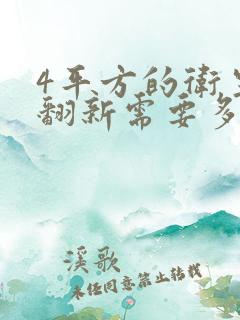 4平方的衛生
翻新需要多
溪歌
未经同意禁止转载